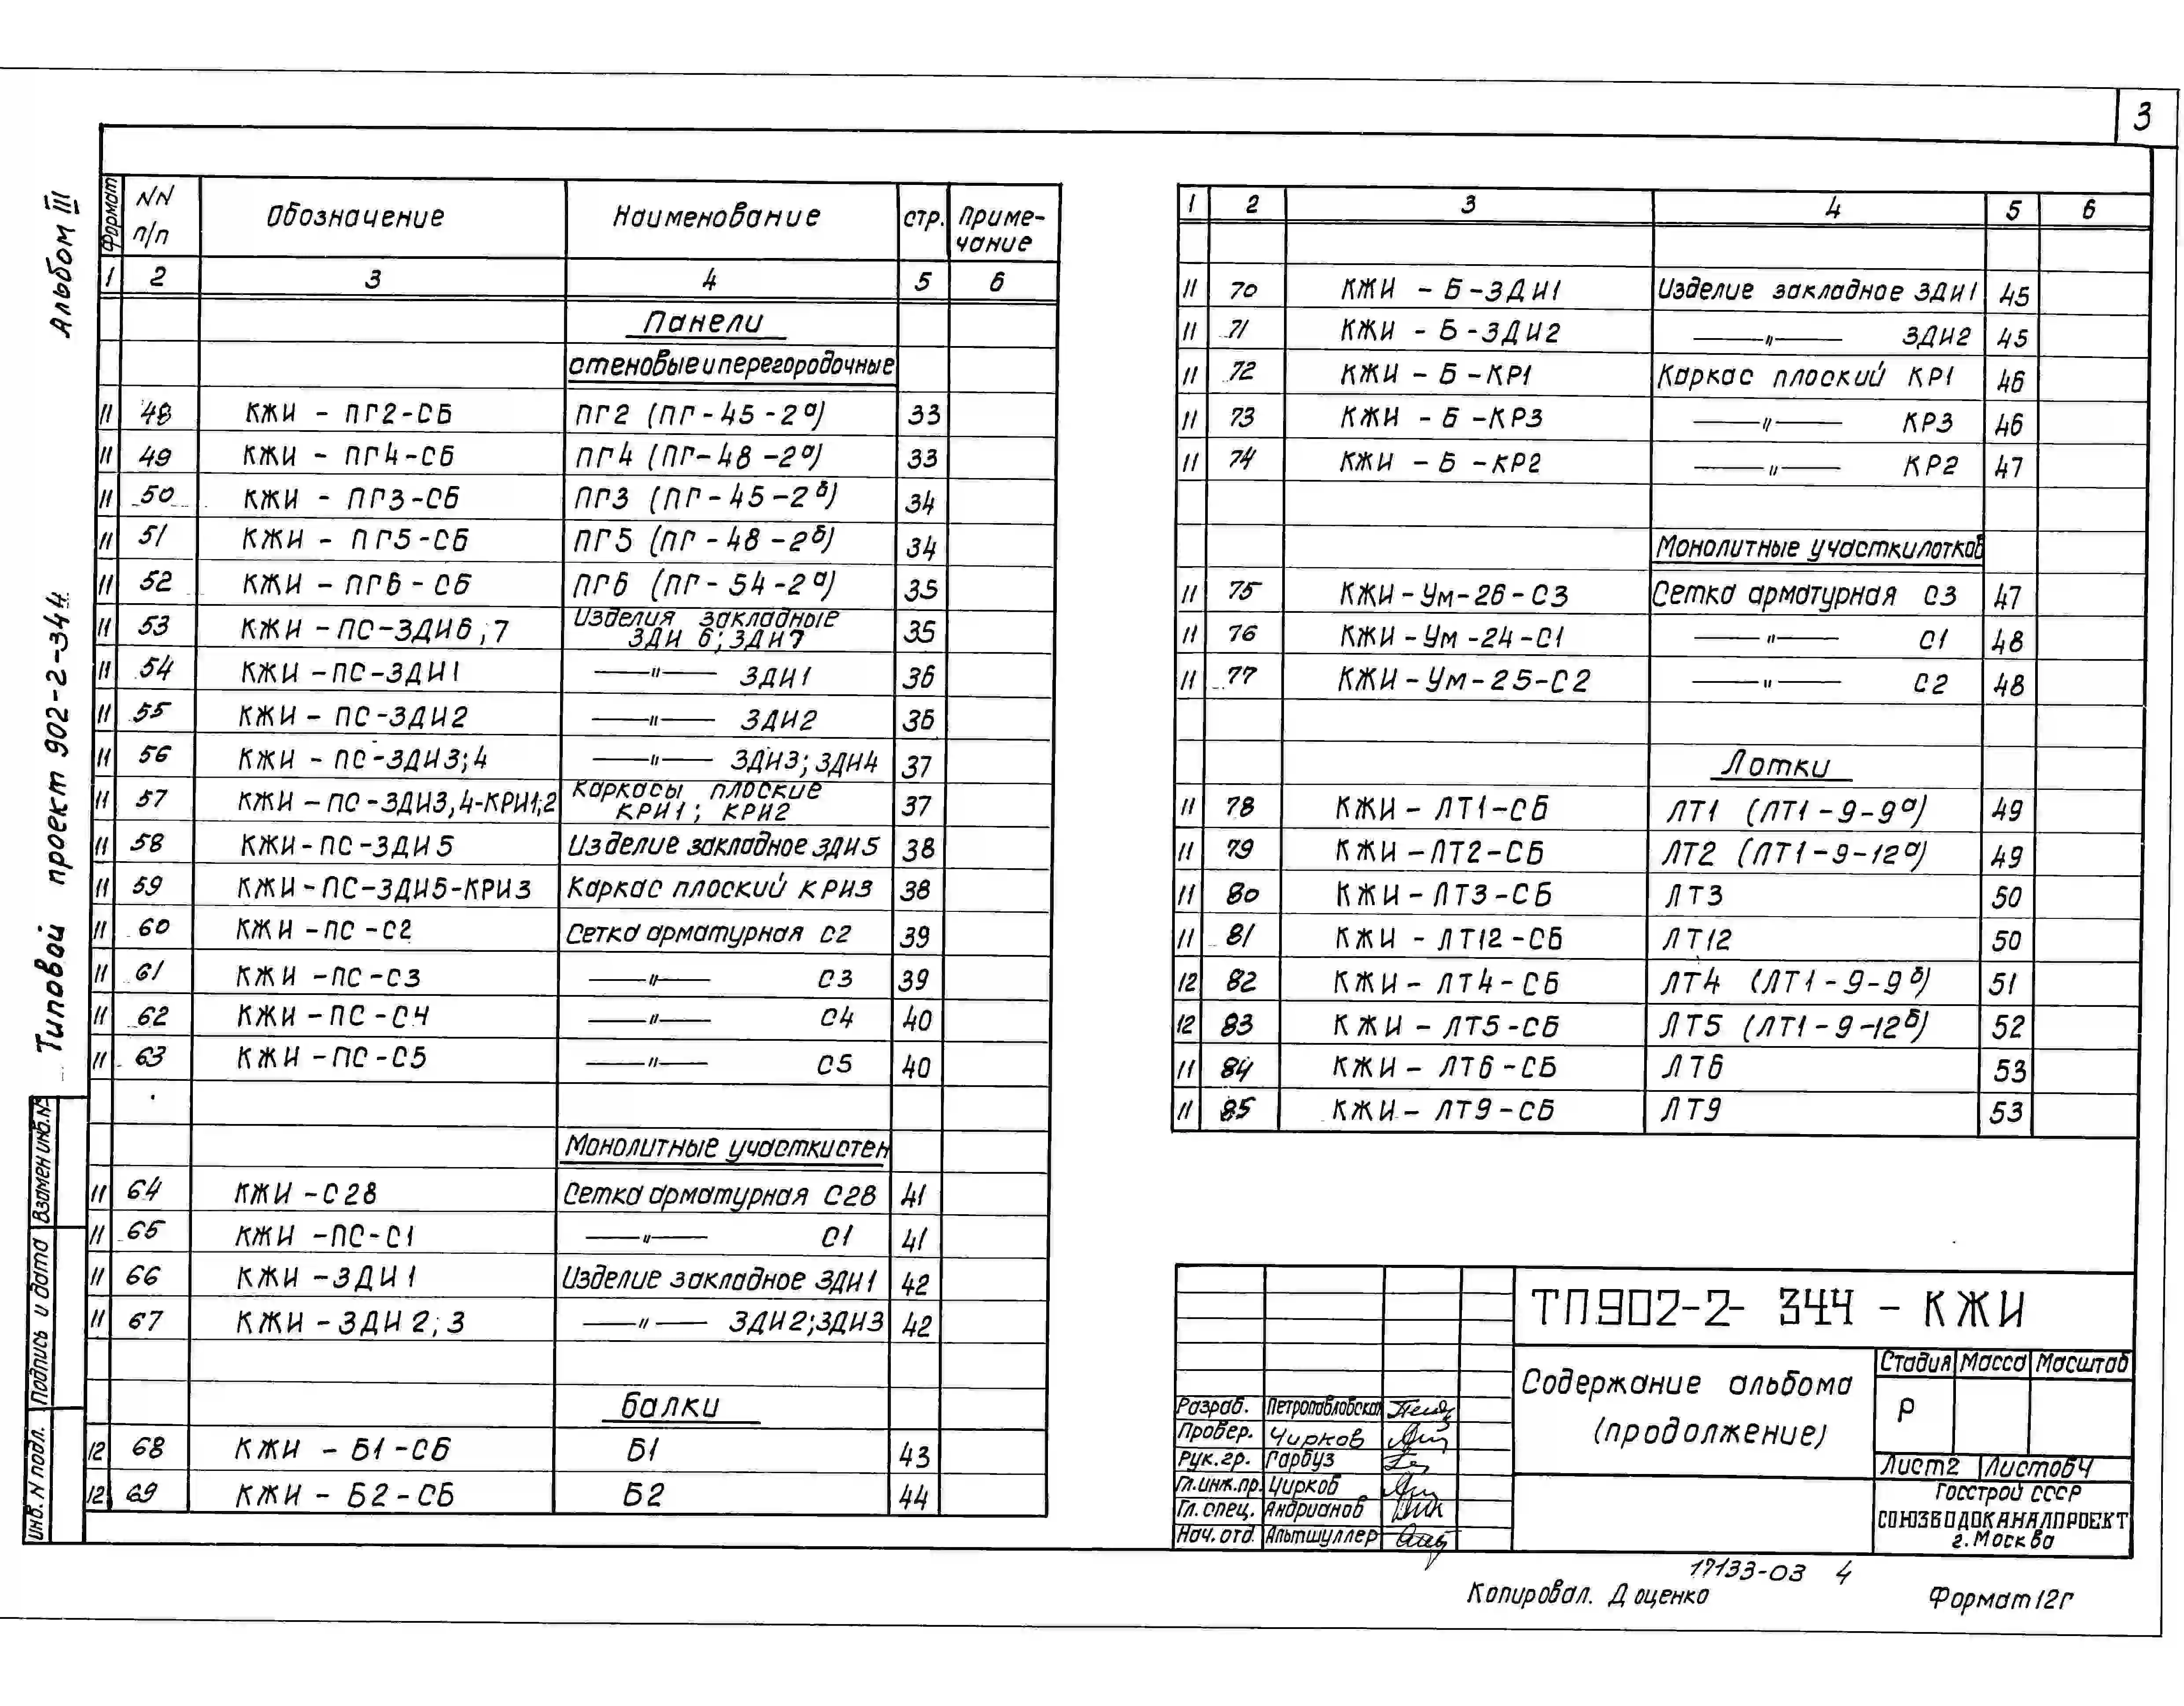 3
Альбом III
Типовой проект 902-2-344
Взамен инв.№
Подпись и дата
Инв. N подл.
Формат | NN п/п | Обозначение | Наименование | стр. | Примечание
1 | 2 | 3 | 4 | 5 | 6
Панели
стеновые и перегородочные
11 | 48 | КЖИ - ПГ2-СБ | ПГ2 (ПГ-45-2а) | 33
11 | 49 | КЖИ - ПГ4-СБ | ПГ4 (ПГ-48-2а) | 33
11 | 50 | КЖИ - ПГ3-СБ | ПГ3 (ПГ-45-2б) | 34
11 | 51 | КЖИ - ПГ5-СБ | ПГ5 (ПГ-48-2б) | 34
11 | 52 | КЖИ - ПГ6-СБ | ПГ6 (ПГ-54-2а) | 35
11 | 53 | КЖИ -ПС-ЗДИ6,7 | Изделия закладные ЗДИ 6; ЗДИ7 | 35
11 | 54 | КЖИ -ПС-ЗДИ1 | —"— ЗДИ1 | 36
11 | 55 | КЖИ - ПС-ЗДИ2 | —"— ЗДИ2 | 36
11 | 56 | КЖИ - ПС-ЗДИ3;4 | —"— ЗДИ3; ЗДИ4 | 37
11 | 57 | КЖИ -ПС-ЗДИ3,4-КРИ1;2 | Каркасы плоские КРИ1; КРИ2 | 37
11 | 58 | КЖИ-ПС-ЗДИ5 | Изделие закладное ЗДИ5 | 38
11 | 59 | КЖИ-ПС-ЗДИ5-КРИ3 | Каркас плоский КРИ3 | 38
11 | 60 | КЖИ -ПС-С2 | Сетка арматурная С2 | 39
11 | 61 | КЖИ -ПС-С3 | —"— С3 | 39
11 | 62 | КЖИ -ПС-С4 | —"— С4 | 40
11 | 63 | КЖИ -ПС-С5 | —"— С5 | 40
Монолитные участки стен
11 | 64 | КЖИ -С28 | Сетка арматурная С28 | 41
11 | 65 | КЖИ -ПС-С1 | —"— С1 | 41
11 | 66 | КЖИ -ЗДИ1 | Изделие закладное ЗДИ1 | 42
11 | 67 | КЖИ -ЗДИ2;3 | —"— ЗДИ2;ЗДИ3 | 42
Балки
12 | 68 | КЖИ - Б1-СБ | Б1 | 43
12 | 69 | КЖИ - Б2-СБ | Б2 | 44
1 | 2 | 3 | 4 | 5 | 6
11 | 70 | КЖИ - Б-ЗДИ1 | Изделие закладное ЗДИ1 | 45
11 | 71 | КЖИ - Б-ЗДИ2 | —"— ЗДИ2 | 45
11 | 72 | КЖИ - Б-КР1 | Каркас плоский КР1 | 46
11 | 73 | КЖИ - Б-КР3 | —"— КР3 | 46
11 | 74 | КЖИ - Б-КР2 | —"— КР2 | 47
Монолитные участки лотков
11 | 75 | КЖИ-Ум-26-С3 | Сетка арматурная С3 | 47
11 | 76 | КЖИ-Ум-24-С1 | —"— С1 | 48
11 | 77 | КЖИ-Ум-25-С2 | —"— С2 | 48
Лотки
11 | 78 | КЖИ- ЛТ1-СБ | ЛТ1 (ЛТ1-9-9а) | 49
11 | 79 | КЖИ -ЛТ2-СБ | ЛТ2 (ЛТ1-9-12а) | 49
11 | 80 | КЖИ- ЛТ3-СБ | ЛТ3 | 50
11 | 81 | КЖИ - ЛТ12-СБ | ЛТ12 | 50
12 | 82 | КЖИ- ЛТ4-СБ | ЛТ4 (ЛТ1-9-9б) | 51
12 | 83 | КЖИ - ЛТ5-СБ | ЛТ5 (ЛТ1-9-12б) | 52
11 | 84 | КЖИ- ЛТ6-СБ | ЛТ6 | 53
11 | 85 | КЖИ- ЛТ9-СБ | ЛТ9 | 53
ТП902-2-344-КЖИ
Содержание альбома
(продолжение)
Стадия | Масса | Масштаб
Р
Лист2 | Листов4
Госстрой СССР
СОЮЗВОДОКАНАЛПРОЕКТ
г.Москва
Разраб. Петропавловская
Провер. Чирков
Рук.гр. Гарбуз
Гл.инж.пр. Цирков
Гл.спец. Андрианов
Нач.отд. Альтшуллер
17133-03 4
Копировал. Доценко
Формат12г